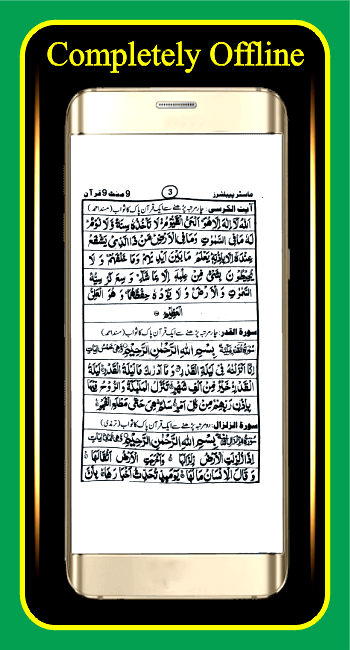 Completely Offline
ماسٹر پبلشرز 3 9 منٹ 9 قرآن
آیت الکرسی: چار مرتبہ پڑھنے سے ایک قرآن پاک کا ثواب (مسند احمد)
اَللّٰهُ لَاۤ اِلٰهَ اِلَّا هُوَ اَلْحَیُّ الْقَیُّوْمُ ۚ لَا تَاْخُذُهٗ سِنَةٌ وَّ لَا نَوْمٌ ؕ
لَهٗ مَا فِی السَّمٰوٰتِ وَ مَا فِی الْاَرْضِ ؕ مَنْ ذَا الَّذِیْ یَشْفَعُ
عِنْدَهٗۤ اِلَّا بِاِذْنِهٖ ؕ یَعْلَمُ مَا بَیْنَ اَیْدِیْهِمْ وَ مَا خَلْفَهُمْ ۚ وَ لَا
یُحِیْطُوْنَ بِشَیْءٍ مِّنْ عِلْمِهٖۤ اِلَّا بِمَا شَآءَ ۚ وَسِعَ كُرْسِیُّهُ
السَّمٰوٰتِ وَ الْاَرْضَ ۚ وَ لَا یَـُٔوْدُهٗ حِفْظُهُمَا ۚ وَ هُوَ الْعَلِیُّ
الْعَظِیْمُ
سورۃ القدر: چار مرتبہ پڑھنے سے ایک قرآن پاک کا ثواب (مسند احمد)
بِسْمِ اللّٰهِ الرَّحْمٰنِ الرَّحِیْمِ
اِنَّاۤ اَنْزَلْنٰهُ فِیْ لَیْلَةِ الْقَدْرِ ۚ وَ مَاۤ اَدْرٰىكَ مَا لَیْلَةُ الْقَدْرِ ؕ لَیْلَةُ
الْقَدْرِ ۙ خَیْرٌ مِّنْ اَلْفِ شَهْرٍ ؕ تَنَزَّلُ الْمَلٰٓىِٕكَةُ وَ الرُّوْحُ فِیْهَا
بِاِذْنِ رَبِّهِمْ ۚ مِنْ كُلِّ اَمْرٍ ۙ سَلٰمٌ ۛ هِیَ حَتّٰى مَطْلَعِ الْفَجْرِ
سورۃ الزلزال: دو مرتبہ پڑھنے سے ایک قرآن پاک کا ثواب (ترمذی)
بِسْمِ اللّٰهِ الرَّحْمٰنِ الرَّحِیْمِ
اِذَا زُلْزِلَتِ الْاَرْضُ زِلْزَالَهَا ۙ وَ اَخْرَجَتِ الْاَرْضُ اَثْقَالَهَا ۙ
وَ قَالَ الْاِنْسَانُ مَا لَهَا ۚ یَوْمَىِٕذٍ تُحَدِّثُ اَخْبَارَهَا ۙ بِاَنَّ